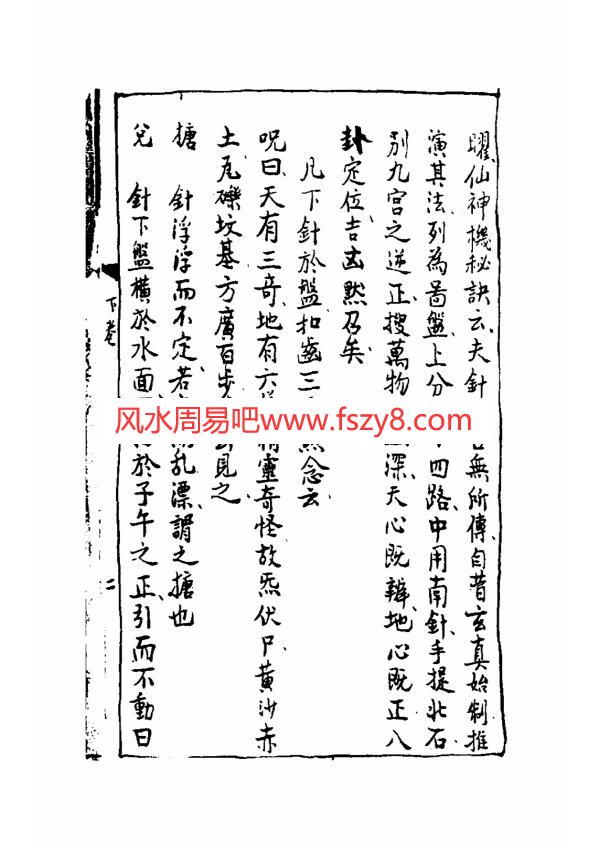 曜仙神機秘訣云夫針 無所傳自昔玄真始制推
演其法列為啚盤上分 四路中用南針手提北石
別九宮之逆正搜萬物 深天心既辯地心既正八
卦定位吉凶默召矣
凡下針於盤扣齒三 念云
咒曰天有三奇地有六 精靈奇怪故炁伏尸黃沙赤
土瓦礫坟基方廣百步 見之
搪 針浮浮而不定若 乱漂謂之搪也
兌 針下盤橫於水面 於子午之正引而不動曰
下卷
二
风水周易吧www.fszy8.com